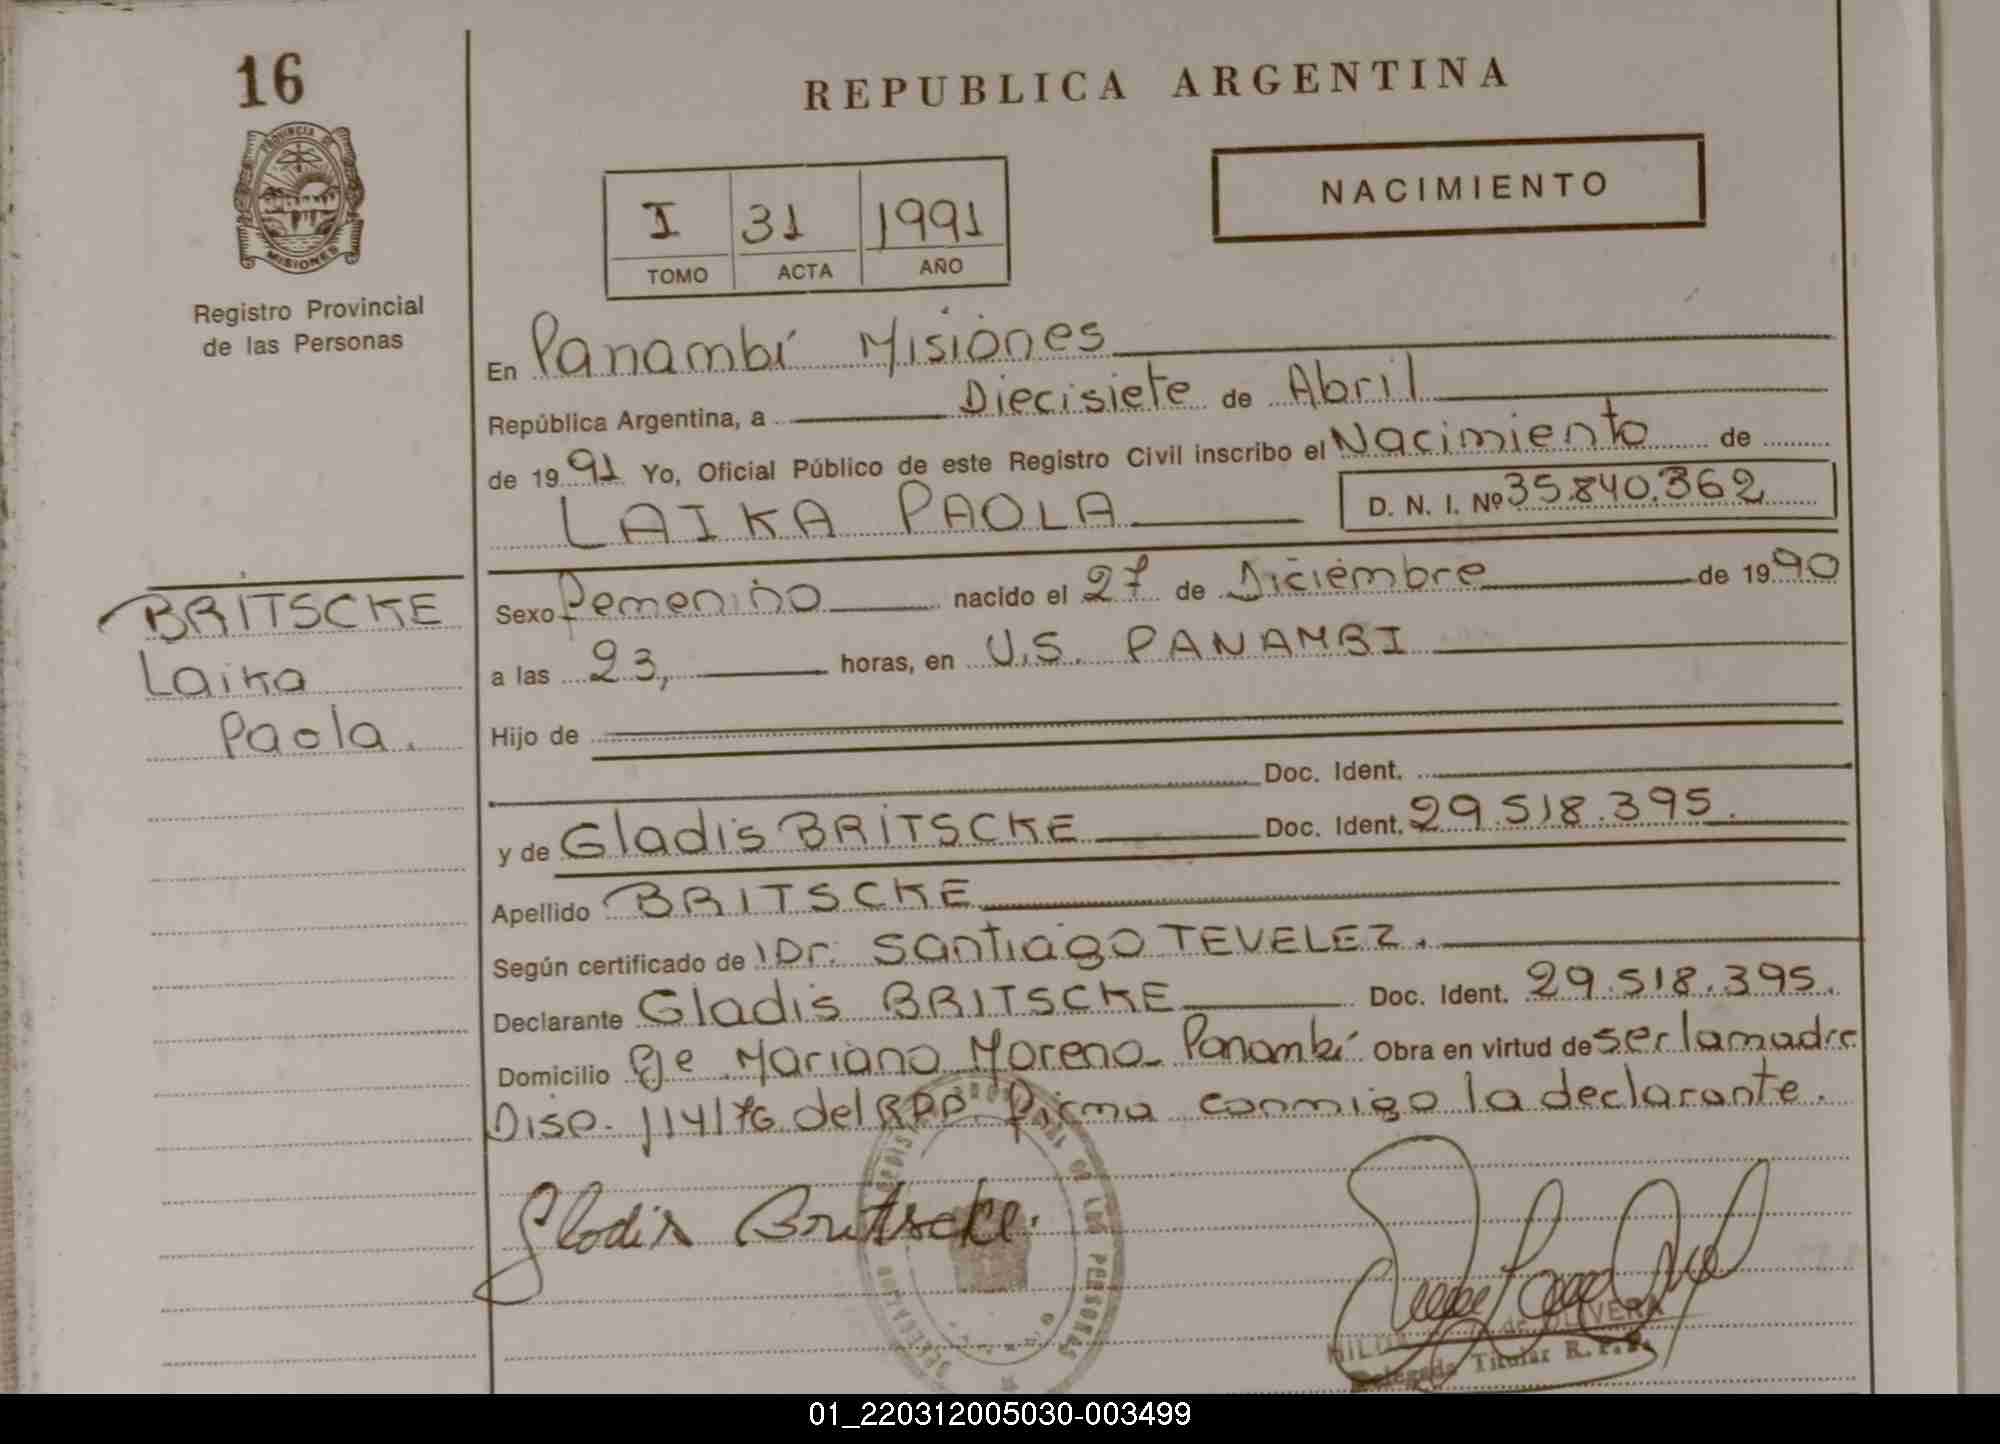 16
REPUBLICA ARGENTINA
PROVINCIA DE
MISIONES
NACIMIENTO
I 31 1991
TOMO ACTA AÑO
Registro Provincial
de las Personas
En Panambí Misiones
República Argentina, a Diecisiete de Abril
de 1991 Yo, Oficial Público de este Registro Civil inscribo el Nacimiento de
LAIKA PAOLA D. N. I. Nº 35.840.362
BRITSCKE
Laika
Paola.
Sexo Femenino nacido el 27 de Diciembre de 1990
a las 23, horas, en U.S. PANAMBI
Hijo de
Doc. Ident.
y de Gladis BRITSCKE Doc. Ident. 29.518.395.
Apellido BRITSCKE
Según certificado de Dr. Santiago TEVELEZ.
Declarante Gladis BRITSCKE Doc. Ident. 29.518.395.
Domicilio Pje Mariano Moreno Panambí Obra en virtud de ser la madre
Disp. 114/76 del RPP. Firma conmigo la declarante.
Gladis Britscke.
DE LAS PERSONAS
de OLIVERA
Delegada Titular R.P.P.
01_220312005030-003499